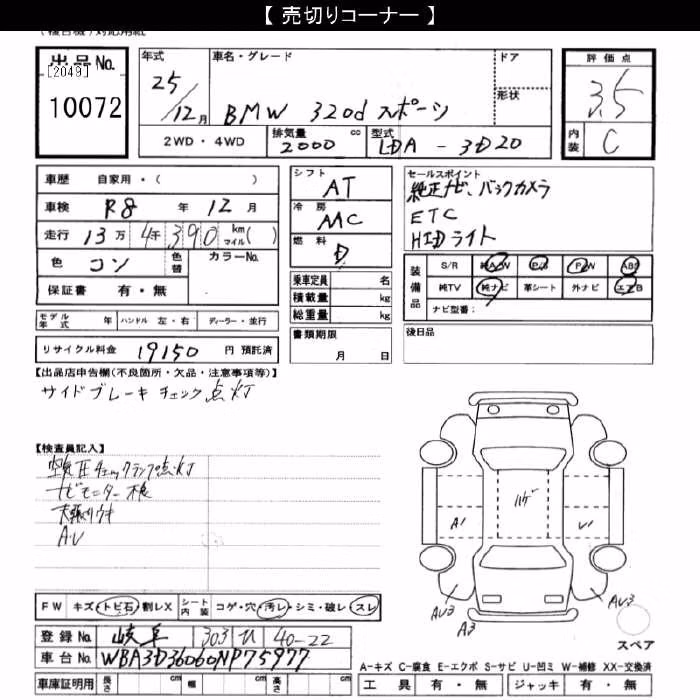 【 売切りコーナー 】
(複合機) 対応用紙
出品No.
[2049]
10072
年式 車名・グレード ドア 形状
25/12月 BMW 320d スポーツ
2WD・4WD 排気量 2000 cc 型式 LDA-3D20
評価点
3.5
内装 C
車歴 自家用・( )
車検 R8 年 12 月
走行 13万 4千 390 km マイル( )
色 コン 色替 カラーNo.
保証書 有・無
モデル年式 年 ハンドル 左・右 ディーラー・並行
リサイクル料金 19150 円 預託済
シフト AT
冷房 MC
燃料 D
乗車定員 名
積載量 kg
総重量 kg
書類期限
月 日
セールスポイント
純正ナビ、バックカメラ
ETC
HIDライト
装備品
S/R 純AW P/S P/W ABS
純TV 純ナビ 革シート 外ナビ エアB
ナビ型番:
後日品
【出品店申告欄(不良箇所・欠品・注意事項等)】
サイドブレーキ チェック点灯
【検査員記入】
空気圧チェックランプ点灯
ナビモニターキズ
天張りウキ
A・U
ハゲ
A1
U1
AU3
A3
AU3
スペア
FW キズ・トビ石・割レX シート内装 コゲ・穴・汚レ・シミ・破レ・スレ
登録No. 岐阜 303 ひ 40-22
車台No. WBA3D36060NP75977
車庫証明用 長さ cm 幅 cm 高さ cm
A-キズ C-腐食 E-エクボ S-サビ U-凹ミ W-補修 XX-交換済
工具 有・無 ジャッキ 有・無